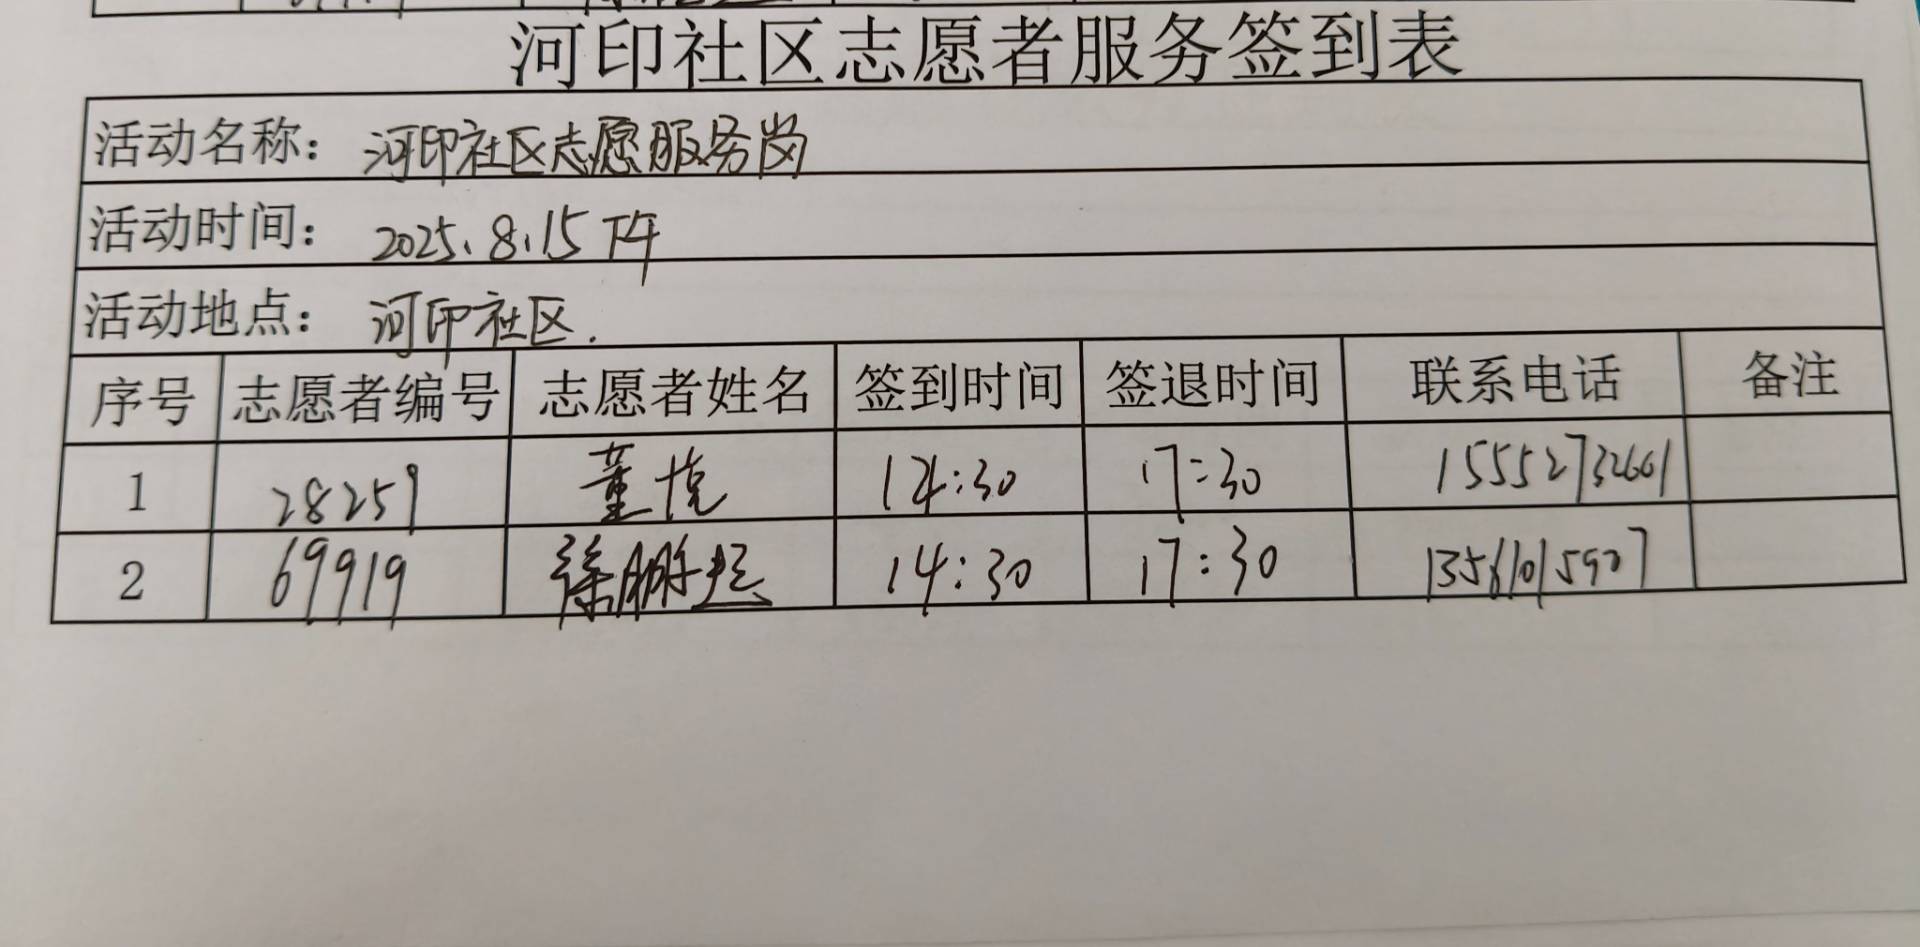 河印社区志愿者服务签到表
活动名称：河印社区志愿服务岗
活动时间：2025.8.15 下午
活动地点：河印社区.
序号 志愿者编号 志愿者姓名 签到时间 签退时间 联系电话 备注
1 28259 董悦 14:30 17:30 15552732661
2 69919 徐鹏 14:30 17:30 13561015907